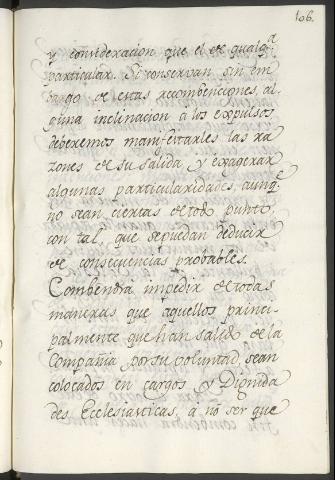 106.
y consideracion que el de qualq.a
particular. Si conservan sin em
bargo de estas reconbenciones, al
guna inclinacion a los expulsos
deberemos manifestarles las ra
zones de su salida, y exagerar
algunas particularidades, aunq.e
no sean ciertas de todo punto,
con tal, que se puedan deducir
de consecuencias probables.
Combendrá impedir de todas
maneras que aquellos princi-
palmente que han salido de la
Compañia por su voluntad, sean
colocados en cargos y Dignida
des Eclesiasticas, á no ser que